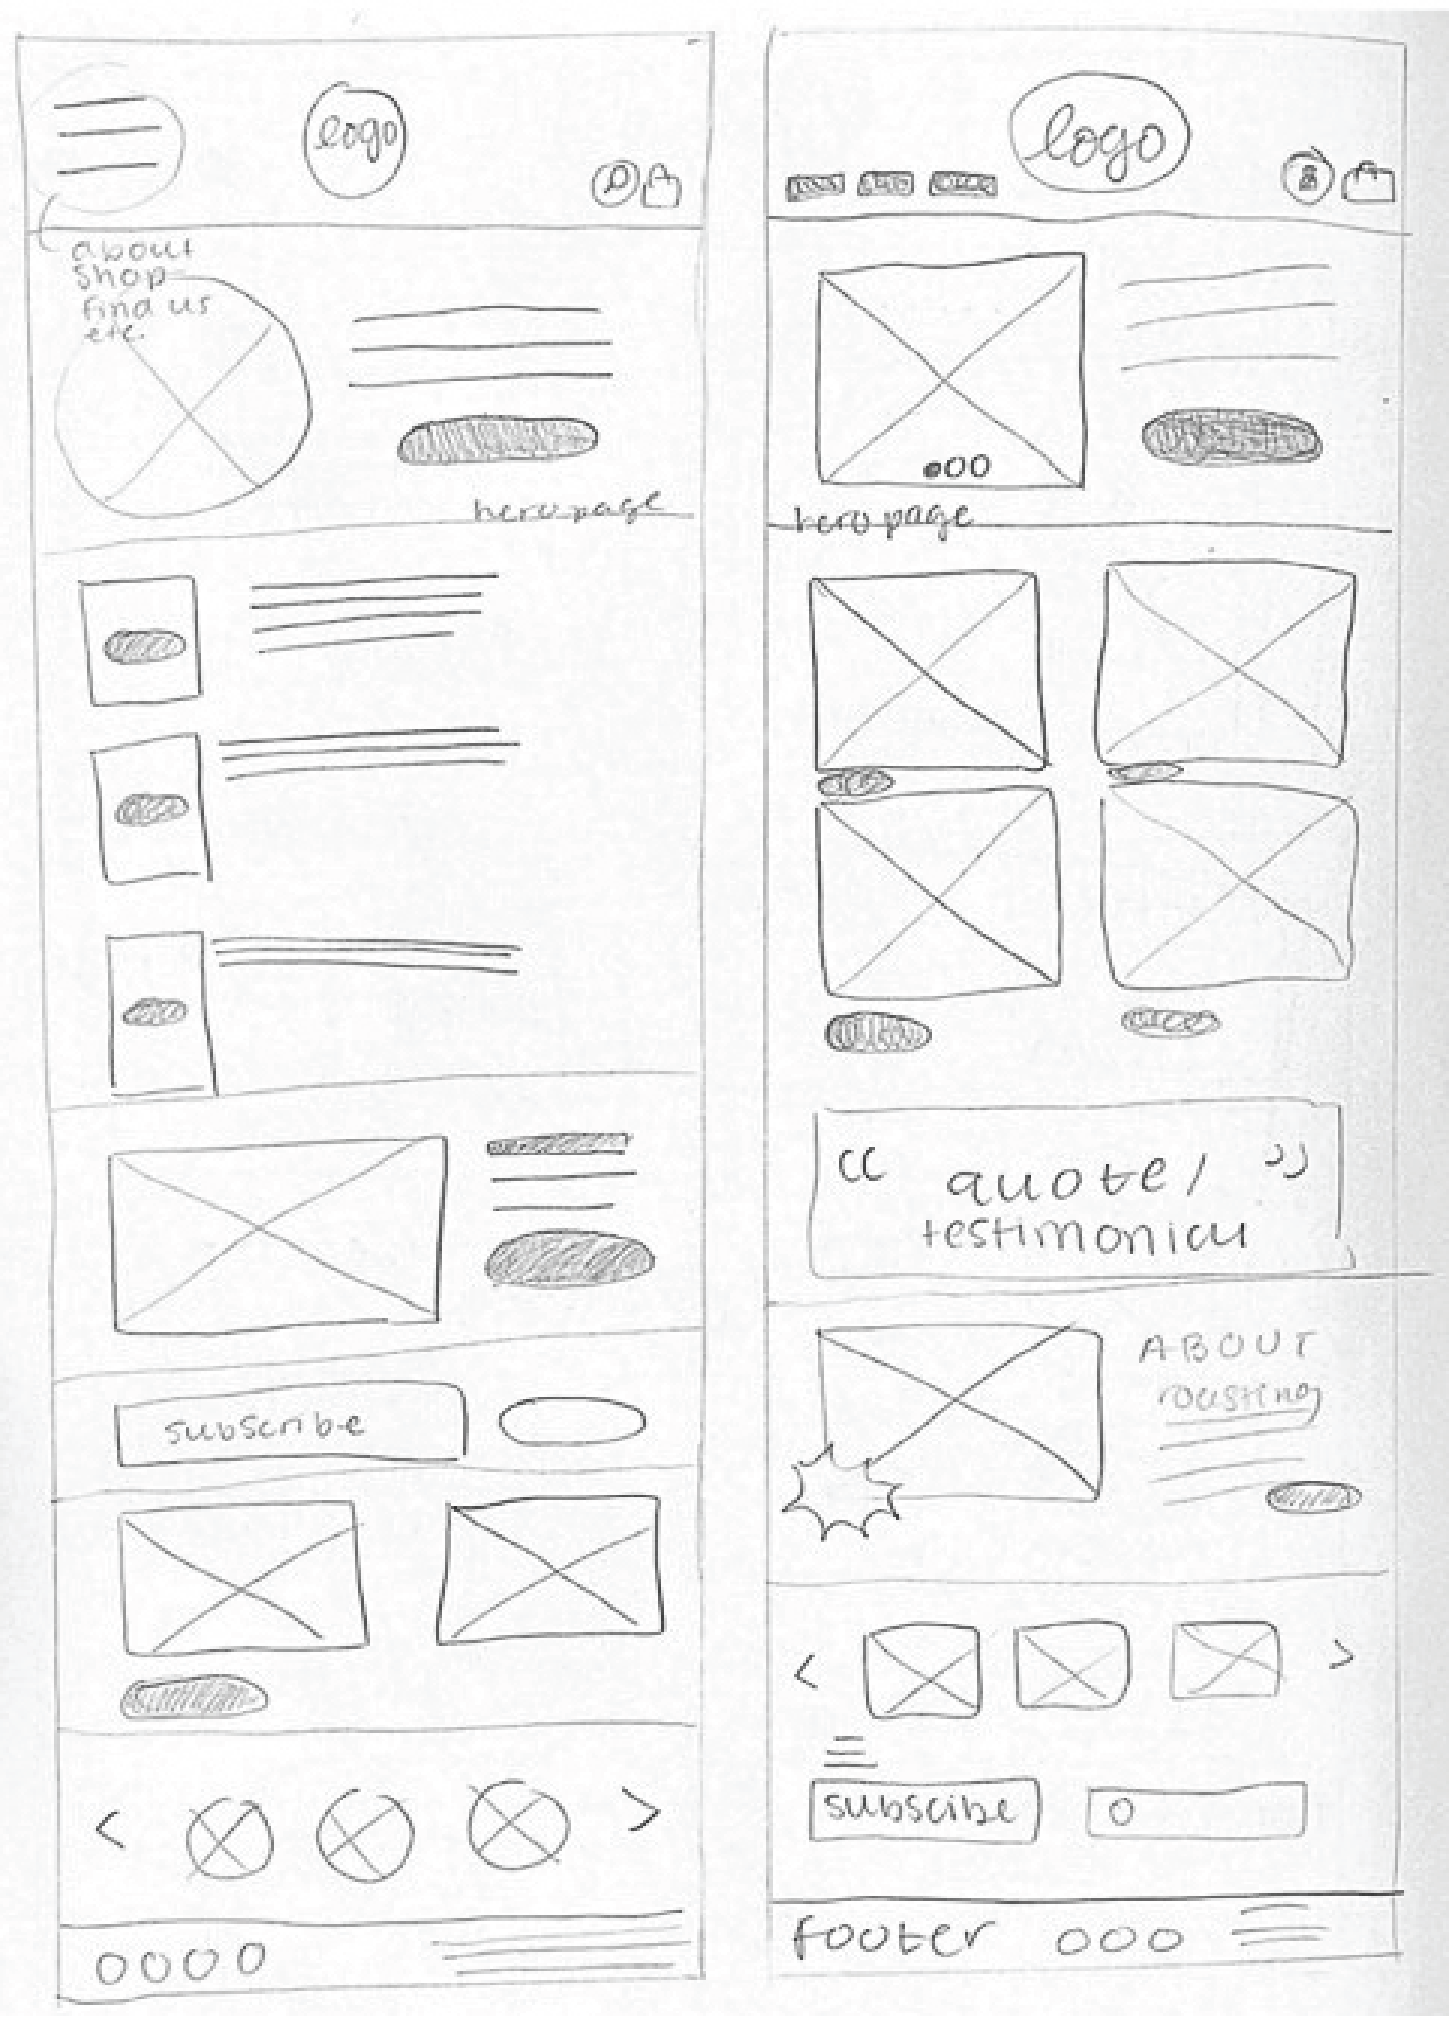 logo
about
shop
find us
etc.
hero page
subscribe
logo
hero page
“ quote/ ”
testimonial
ABOUT
roasting
subscibe
footer